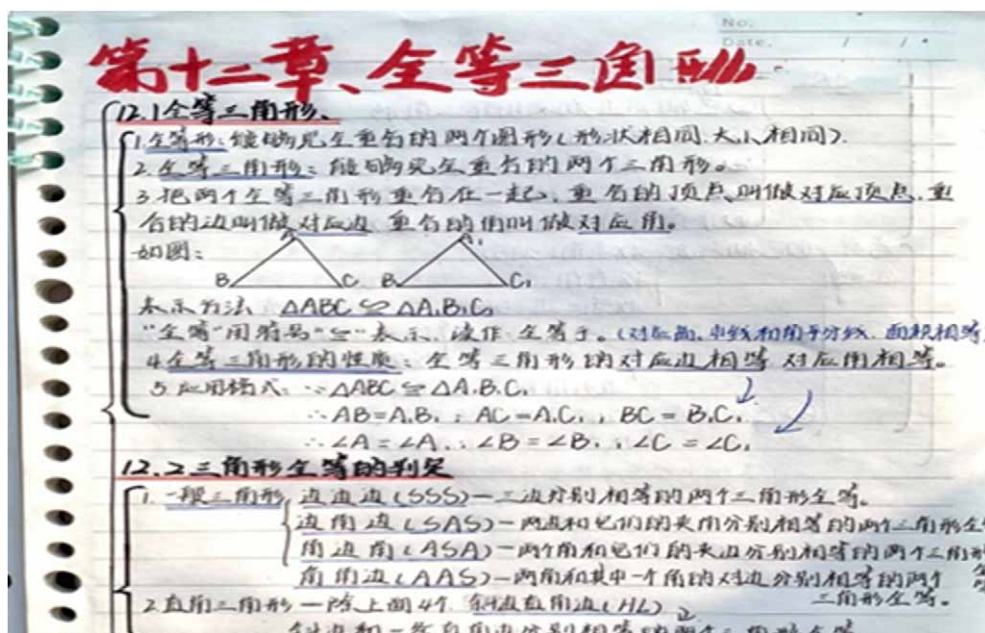 No.
Date. / / .
第十二章、全等三角形
12.1全等三角形、
1.全等形:能够完全重合的两个图形(形状相同.大小相同).
2.全等三角形:能够完全重合的两个三角形。
3.把两个全等三角形重合在一起,重合的顶点叫做对应顶点.重
合的边叫做对应边 重合的角叫做对应角。
如图:
A A₁
B C B C₁
表示方法 △ABC≌△A₁B₁C₁
"全等"用符号"≌"表示,读作 全等于。(对应高.中线和角平分线.面积相等
4.全等三角形的性质:全等三角形的对应边相等 对应角相等。
5.应用格式:∵△ABC≌△A₁B₁C₁
∴AB=A₁B₁;AC=A₁C₁,BC=B₁C₁
∴∠A=∠A₁;∠B=∠B₁;∠C=∠C₁
12.2三角形全等的判定
1.一般三角形 边边边(SSS)—三边分别相等的两个三角形全等。
边角边(SAS)—两边和它们的夹角分别相等的两个三角形全
角边角(ASA)—两个角和它们的夹边分别相等的两个三角形
角角边(AAS)—两角和其中一个角的对边分别相等的两个
三角形全等。
2.直角三角形—除上面4个 斜边直角边(HL)
斜边和一条直角边分别相等的两个三角形全等